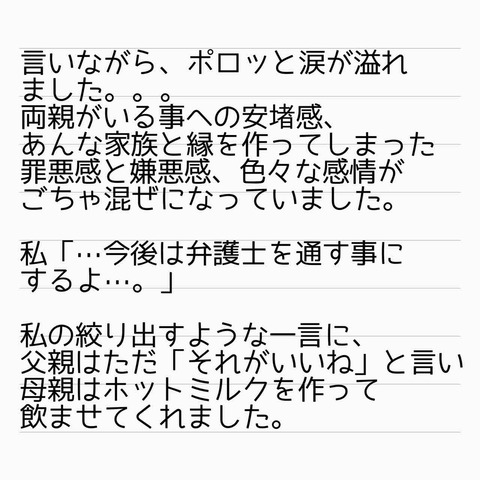 言いながら、ポロッと涙が溢れ
ました。。。
両親がいる事への安堵感、
あんな家族と縁を作ってしまった
罪悪感と嫌悪感、色々な感情が
ごちゃ混ぜになっていました。
私「…今後は弁護士を通す事に
するよ…。」
私の絞り出すような一言に、
父親はただ「それがいいね」と言い
母親はホットミルクを作って
飲ませてくれました。